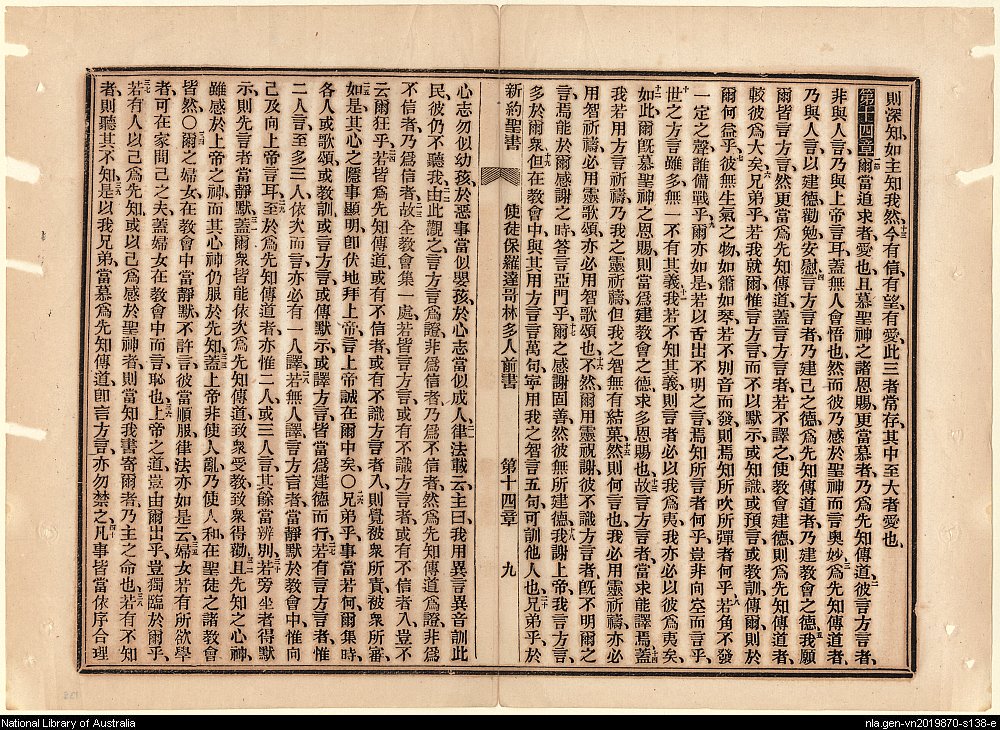 則深知如主知我然十三今有信有望有愛此三者常存其中至大者愛也
第十四章一爾當追求者愛也且慕聖神之諸恩賜更當慕者乃爲先知傳道二彼言方言者
非與人言乃與上帝言耳蓋無人會悟也然而彼乃感於聖神而言奧妙三爲先知傳道者
乃與人言以建德勸勉安慰四言方言者乃建己之德爲先知傳道者乃建教會之德五我願
爾皆言方言然更當爲先知傳道蓋言方言者若不譯之使教會建德則爲先知傳道者
較彼爲大矣六兄弟乎若我就爾惟言方言而不以默示或知識或預言或教訓傳爾則於
爾何益乎七彼無生氣之物如簫如琴若不別音而發則焉知所吹所彈者何乎八若角不發
一定之聲誰備戰乎九爾亦如是若以舌出不明之言焉知所言者何乎豈非向空而言乎
十世之方言雖多無一不有其義十一我若不知其義則言者必以我爲夷我亦必以彼爲夷矣
十二如此爾既慕聖神之恩賜則當爲建教會之德求多恩賜也十三故言方言者當求能譯焉十四蓋
我若用方言祈禱乃我之靈祈禱但我之智無有結菓十五然則何言也我必用靈祈禱亦必
用智祈禱必用靈歌頌亦必用智歌頌也十六不然爾用靈祝謝彼不識方言者既不明爾之
言焉能於爾感謝之時答言亞門乎十七爾之感謝固善然彼無所建德十八我謝上帝我言方言
多於爾衆十九但在教會中與其用方言言萬句寧用我之智言五句可訓他人也二十兄弟乎於
新約聖書 使徒保羅達哥林多人前書 第十四章 九
心志勿似幼孩於惡事當似嬰孩於心志當似成人二一律法載云主曰我用異言異音訓此
民彼仍不聽我二二由此觀之言方言爲證非爲信者乃爲不信者然爲先知傳道爲證非爲
不信者乃爲信者二三故全教會集一處若皆言方言或有不識方言者或有不信者入豈不
云爾狂乎二四若皆爲先知傳道或有不信者或有不識方言者入則覺被衆所責被衆所審
二五如是其心之隱事顯明即伏地拜上帝言上帝誠在爾中矣〇二六兄弟乎事當若何爾集時
各人或歌頌或教訓或言方言或傳默示或譯方言皆當爲建德而行二七若有言方言者惟
二人言至多三人依次而言亦必有一人譯二八若無人譯言方言者當靜默於教會中惟向
己及向上帝言耳二九至於爲先知傳道者亦惟二人或三人言其餘當辨別三十若旁坐者得默
示則先言者當靜默三一蓋爾衆皆能依次爲先知傳道致衆受教致衆得勸三二且先知之心神
雖感於上帝之神而其心神仍服於先知三三蓋上帝非使人亂乃使人和在聖徒之諸教會
皆然〇三四爾之婦女在教會中當靜默不許言彼當順服律法亦如是云三五婦女若有所欲學
者可在家問己之夫蓋婦女在教會中而言恥也三六上帝之道豈由爾出乎豈獨臨於爾乎
三七若有人以己爲先知或以己爲感於聖神者則當知我書寄爾者乃主之命也三八若有不知
者則聽其不知三九是以我兄弟當慕爲先知傳道即言方言亦勿禁之四十凡事皆當依序合理
National Library of Australia
nla.gen-vn2019870-s138-e